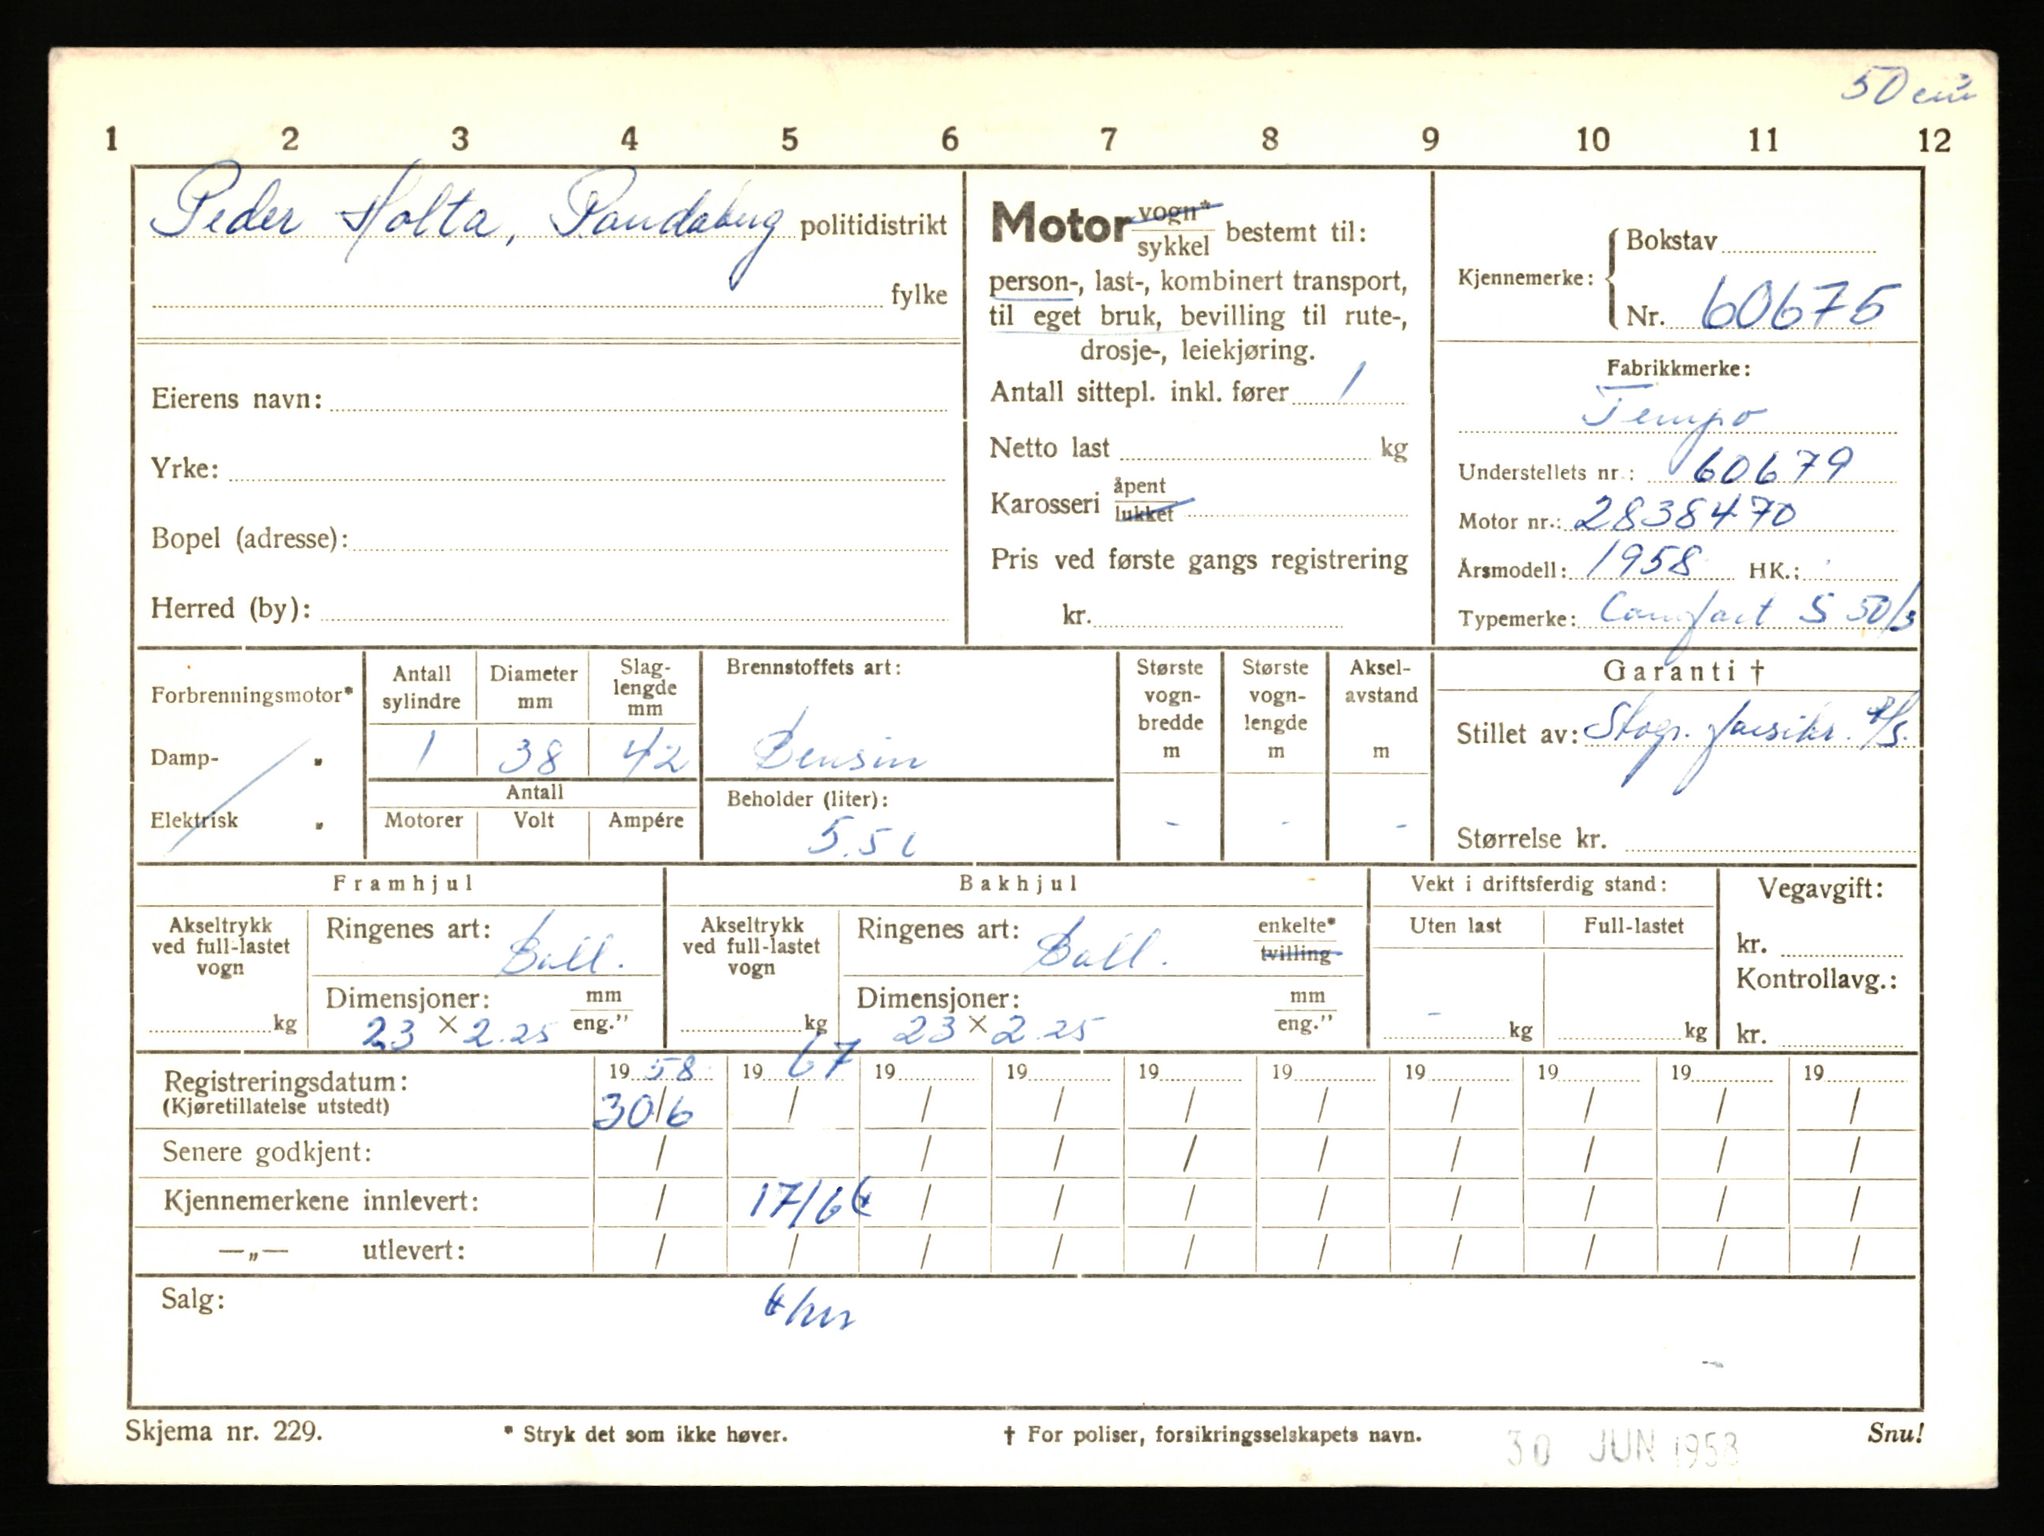 50 cm³
1 2 3 4 5 6 7 8 9 10 11 12
Peder Holta, Randaberg politidistrikt
fylke
Eierens navn:
Yrke:
Bopel (adresse):
Herred (by):
Motor vogn* sykkel bestemt til:
person-, last-, kombinert transport,
til eget bruk, bevilling til rute-,
drosje-, leiekjøring.
Antall sittepl. inkl. fører 1
Netto last kg
Karosseri åpent lukket
Pris ved første gangs registrering
kr.
Kjennemerke: Bokstav
Nr. 60675
Fabrikkmerke:
Tempo
Understellets nr.: 60679
Motor nr.: 2838470
Årsmodell: 1958 HK.:
Typemerke: Comfort S 50/3
Forbrenningsmotor*
Damp- „
Elektrisk „
Antall sylindre Diameter mm Slag-lengde mm
1 38 42
Antall
Motorer Volt Ampére
Brennstoffets art:
Bensin
Beholder (liter):
5.5 l
Største vogn-bredde m Største vogn-lengde m Aksel-avstand m
- - -
Garanti †
Stillet av: Stogr. forsikr. A/S.
Størrelse kr.
Framhjul
Akseltrykk
ved full-lastet
vogn
kg
Ringenes art: Ball.
Dimensjoner: mm
23 × 2.25 eng."
Bakhjul
Akseltrykk
ved full-lastet
vogn
kg
Ringenes art: Ball. enkelte* tvilling
Dimensjoner: mm
23 × 2.25 eng."
Vekt i driftsferdig stand:
Uten last Full-lastet
- kg kg
Vegavgift:
kr.
Kontrollavg.:
kr.
Registreringsdatum: 19 58 19 67 19 19 19 19 19 19 19 19
(Kjøretillatelse utstedt) 30/6 / / / / / / / / /
Senere godkjent: / / / / / / / / /
Kjennemerkene innlevert: / 17/6 / / / / / / / /
—„— utlevert: / / / / / / / / / /
Salg:
Skjema nr. 229. * Stryk det som ikke høver. † For poliser, forsikringsselskapets navn. Snu!
30 JUN 1958